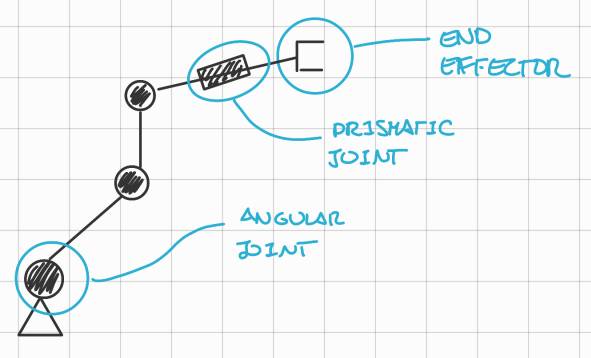 END
EFFECTOR
PRISMATIC
JOINT
ANGULAR
JOINT